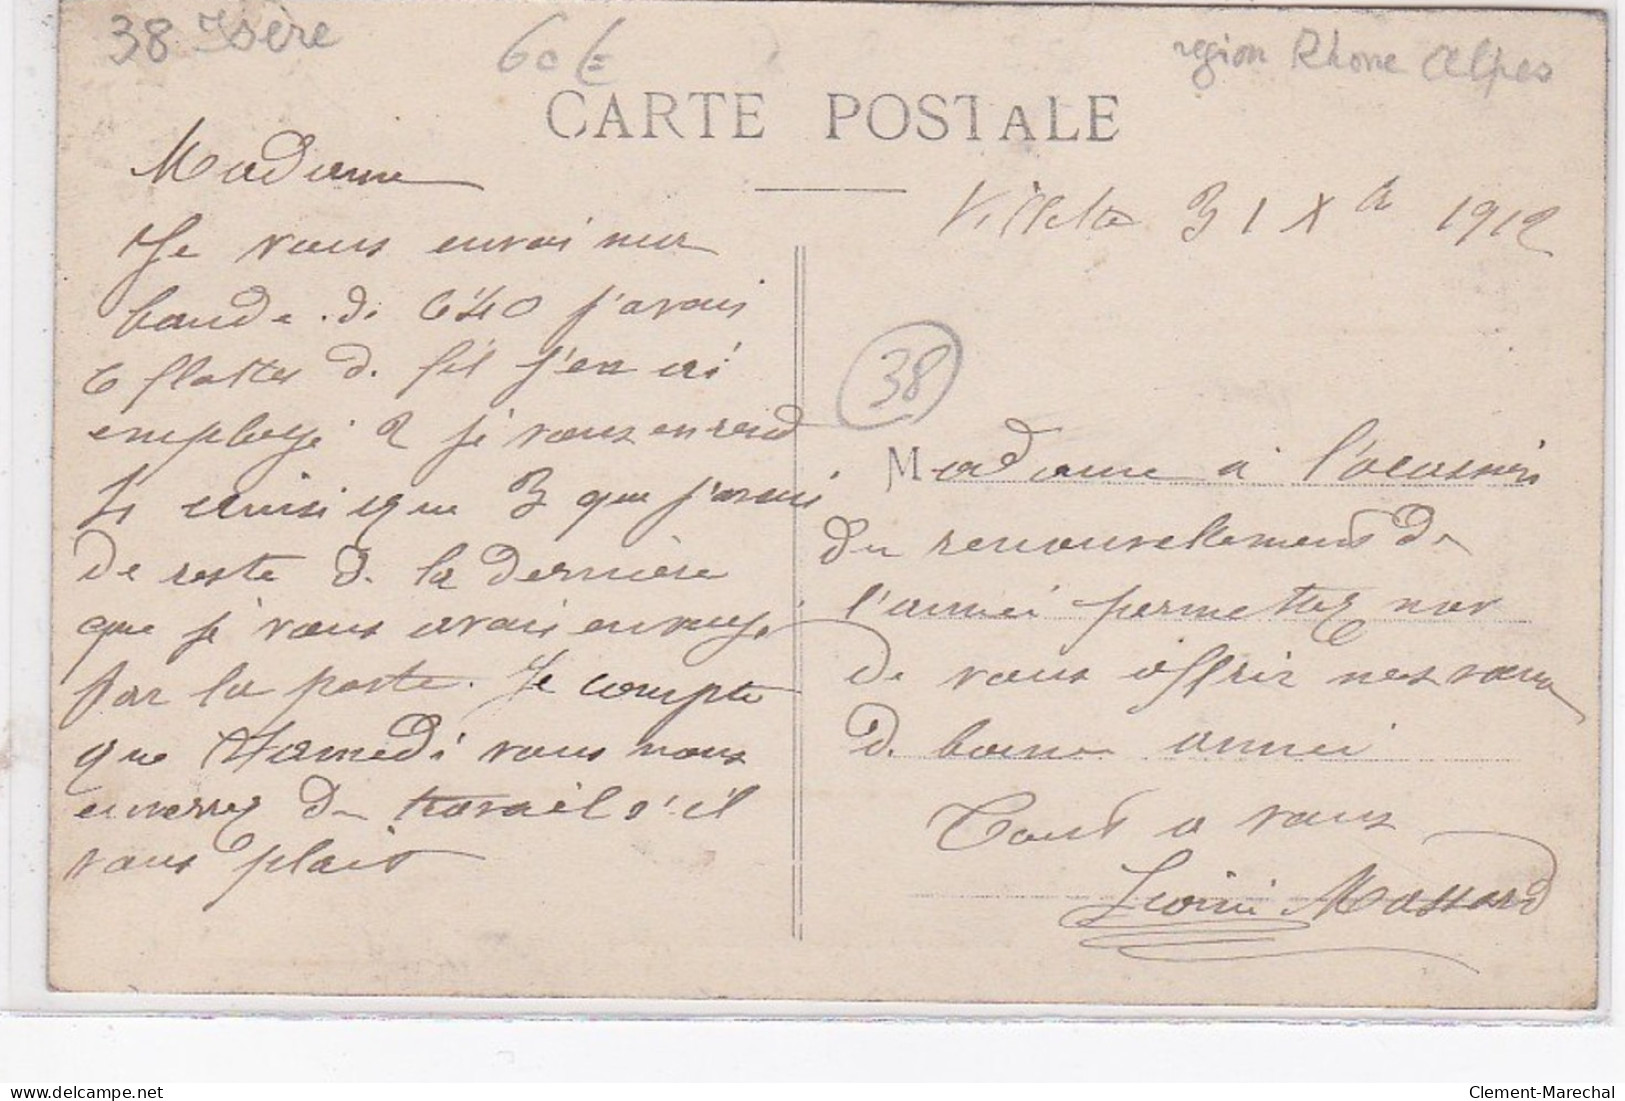 38 Isère
60 €
region Rhone Alpes
CARTE POSTALE
Madame
Villette 31 Xbr 1912
Je vous envoi une
bande di 6m40 j'avais
6 flottes d. fil j'en ai
employé 2 je vous en rend
4 ainsi que 3 que j'avais
de reste d. la dernière
que je vous avais envoye
par la poste. Je compte
que Samedi vous nous
enverrez du travail s'il
vous plait
38
Madame a l'ocasion
du renouvellement de
l'annei permettez
de vous offrir nos voeux
d. bonne annei
Tout a vous
Leonie Massard
Clement-Marechal